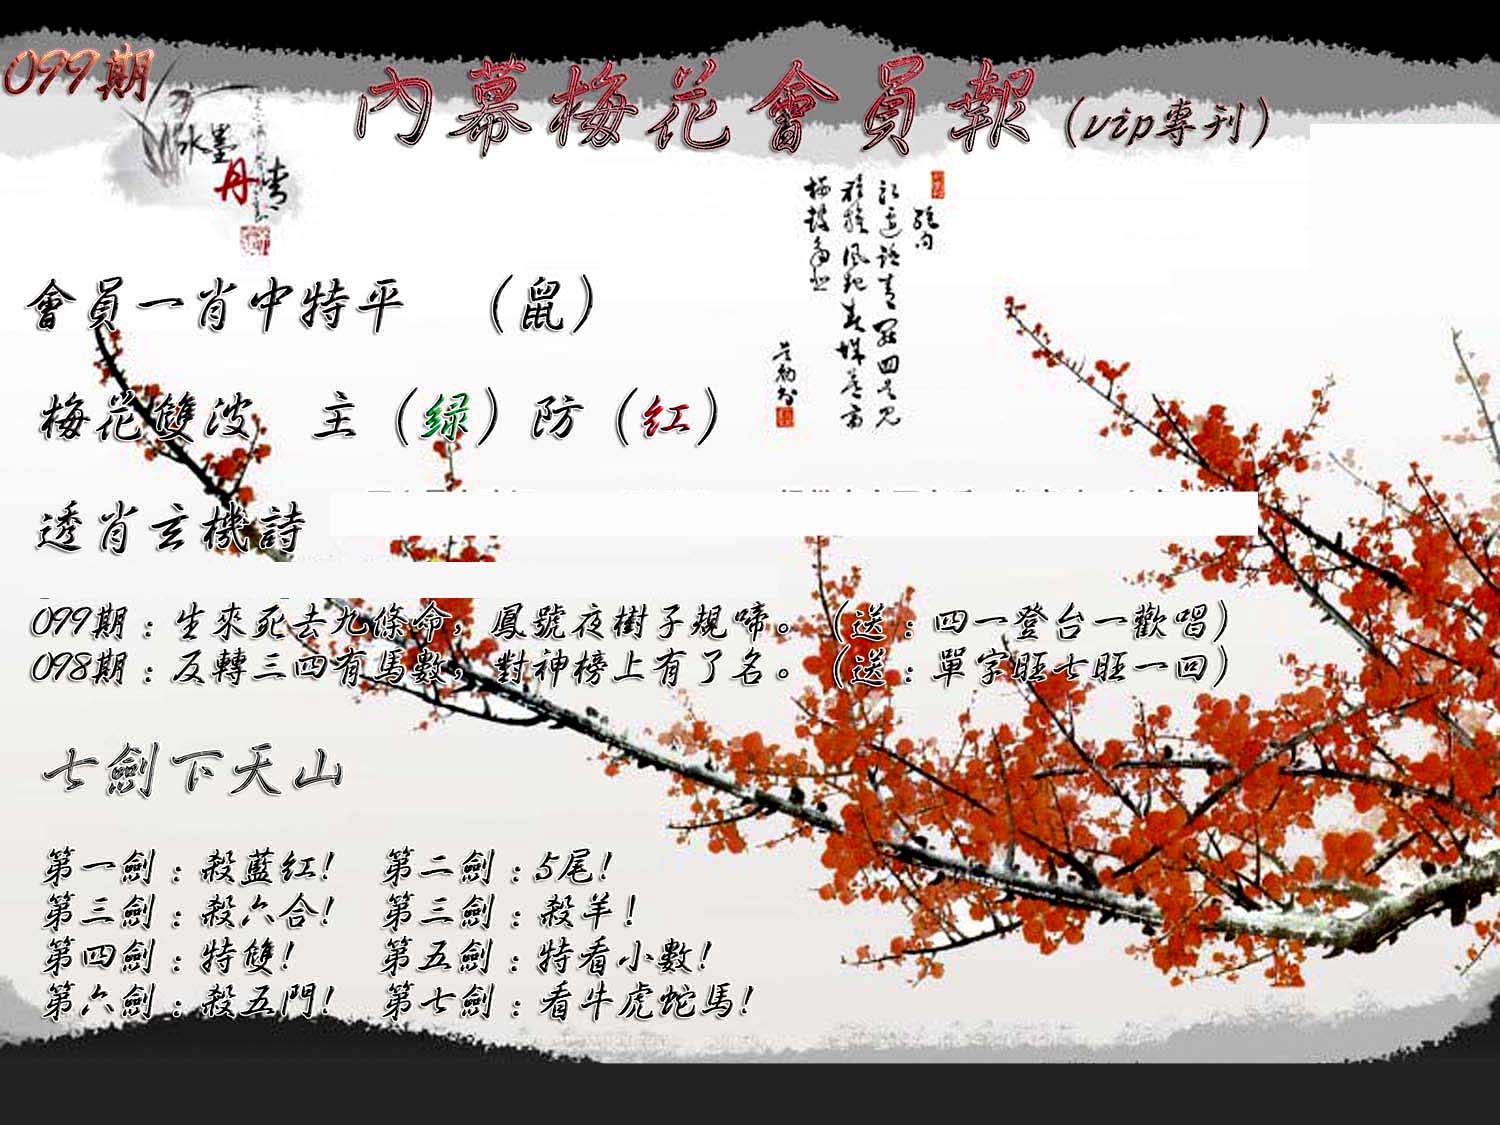 099期
內幕梅花會員報（vip專刊）
水墨
丹青
會員一肖中特平　（鼠）
梅花雙波　主（绿）防（红）
透肖玄機詩
099期：生來死去九條命，鳳號夜樹子規啼。（送：四一登台一歡唱）
098期：反轉三四有馬數，對神榜上有了名。（送：單字旺七旺一回）
七劍下天山
第一劍：殺藍红！　第二劍：5尾！
第三劍：殺六合！　第三劍：殺羊！
第四劍：特雙！　第五劍：特看小數！
第六劍：殺五門！　第七劍：看牛虎蛇馬！